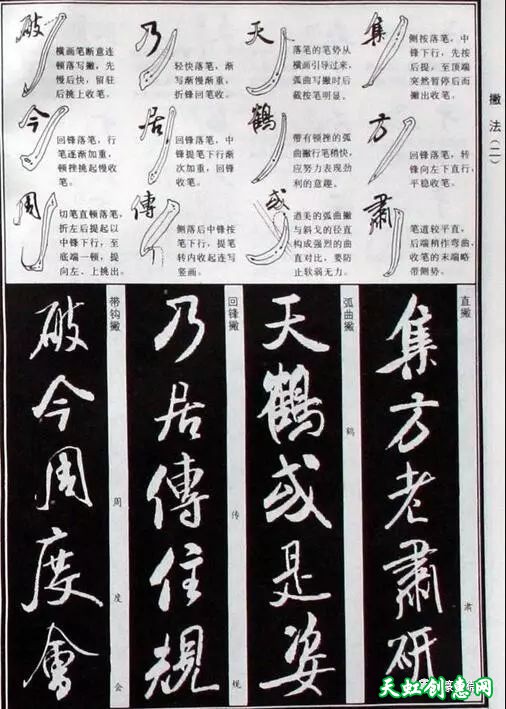 撇法(二)
集
侧按落笔，中
锋下行，先按
后提，至顶端
突然暂停后而
撇出收笔。
方
回锋落笔，转
锋向左下直行，
平稳收笔。
肅
笔道较平直，
后端稍作弯曲，
收笔的末端略
带侧势。
天
落笔的笔势从
横画引导过来，
弧曲写撇时后
截按笔明显。
鶴
带有顿挫的弧
曲撇行笔稍快，
应努力表现劲
利的意趣。
或
遒美的弧曲撇
与斜戈的径直
构成强烈的曲
直对比，要防
止软弱无力。
乃
轻快落笔，渐
写渐慢渐重，
折锋回笔收。
居
回锋落笔，中
锋提笔下行渐
次加重，回锋
收笔。
傳
侧落后中锋按
笔下行，提笔
转内收起连写
竖画。
破
横画笔断意连
顿落写撇，先
慢后快，留驻
后挑上收笔。
今
回锋落笔，行
笔逐渐加重，
顿挫挑起慢收
笔。
周
切笔直顿落笔，
折左后提起以
中锋下行，至
底端一顿，提
向左、上挑出。
直撇
肃
集方老肅研
弧曲撇
鹤
天鶴或是姿
回锋撇
传
规
乃居傳住規
带钩撇
周
度
会
破今周度會
天虹创意网